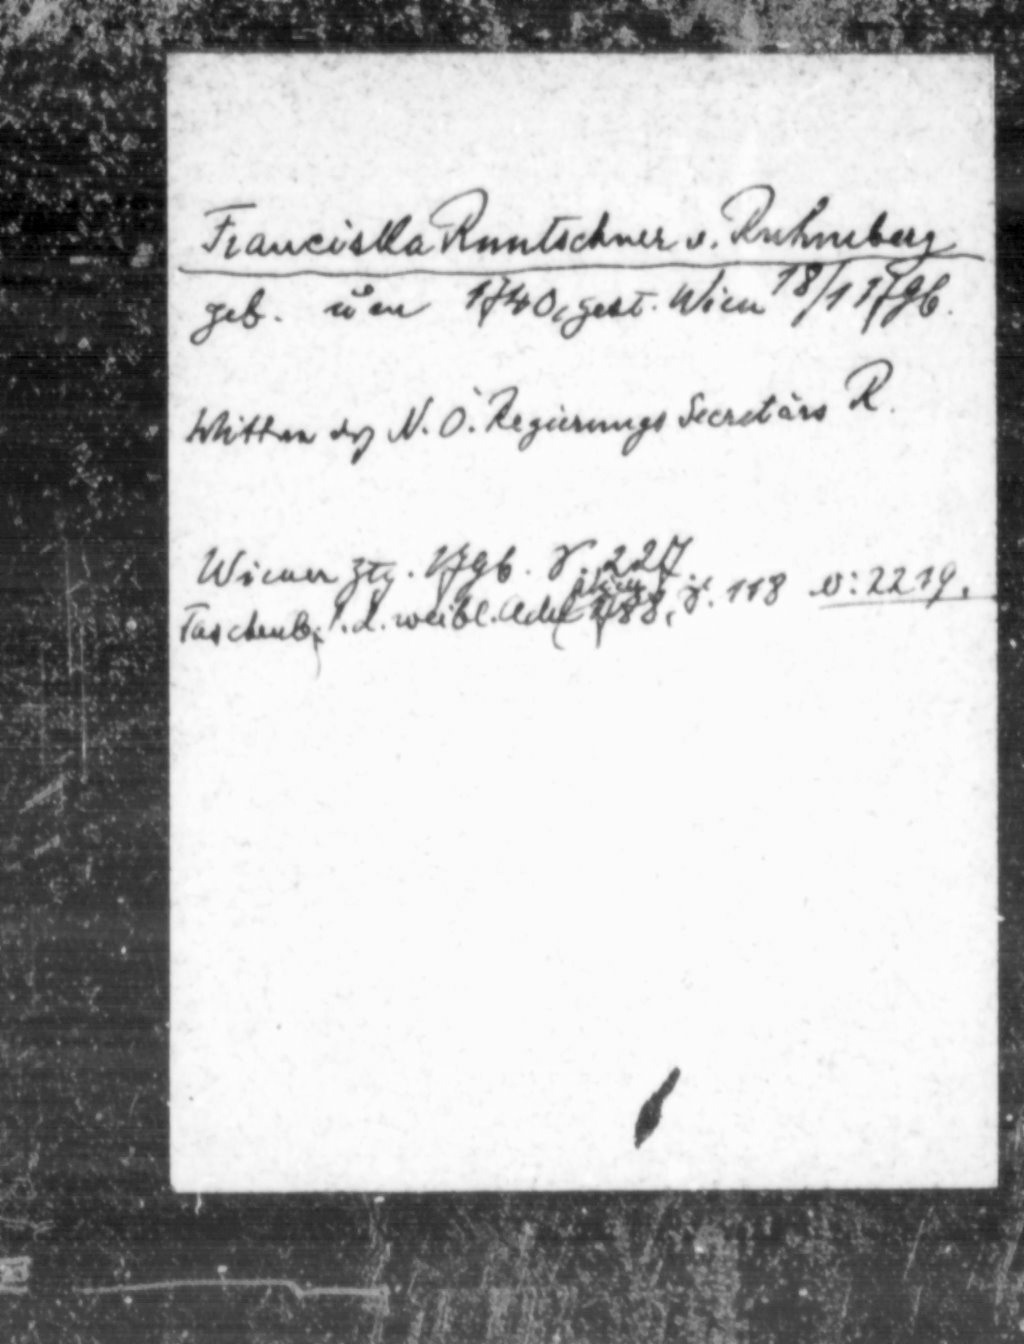 Franciska Runtschner v. Ruhmberg
geb. um 1740, gest. Wien 18/1 1796.
Witwe des N. Ö. Regierungs Secretärs R.
Wiener Ztg. 1796. S. 227
Taschenb. f. d. weibl. Adel 1788, S. 118 v: 2219.